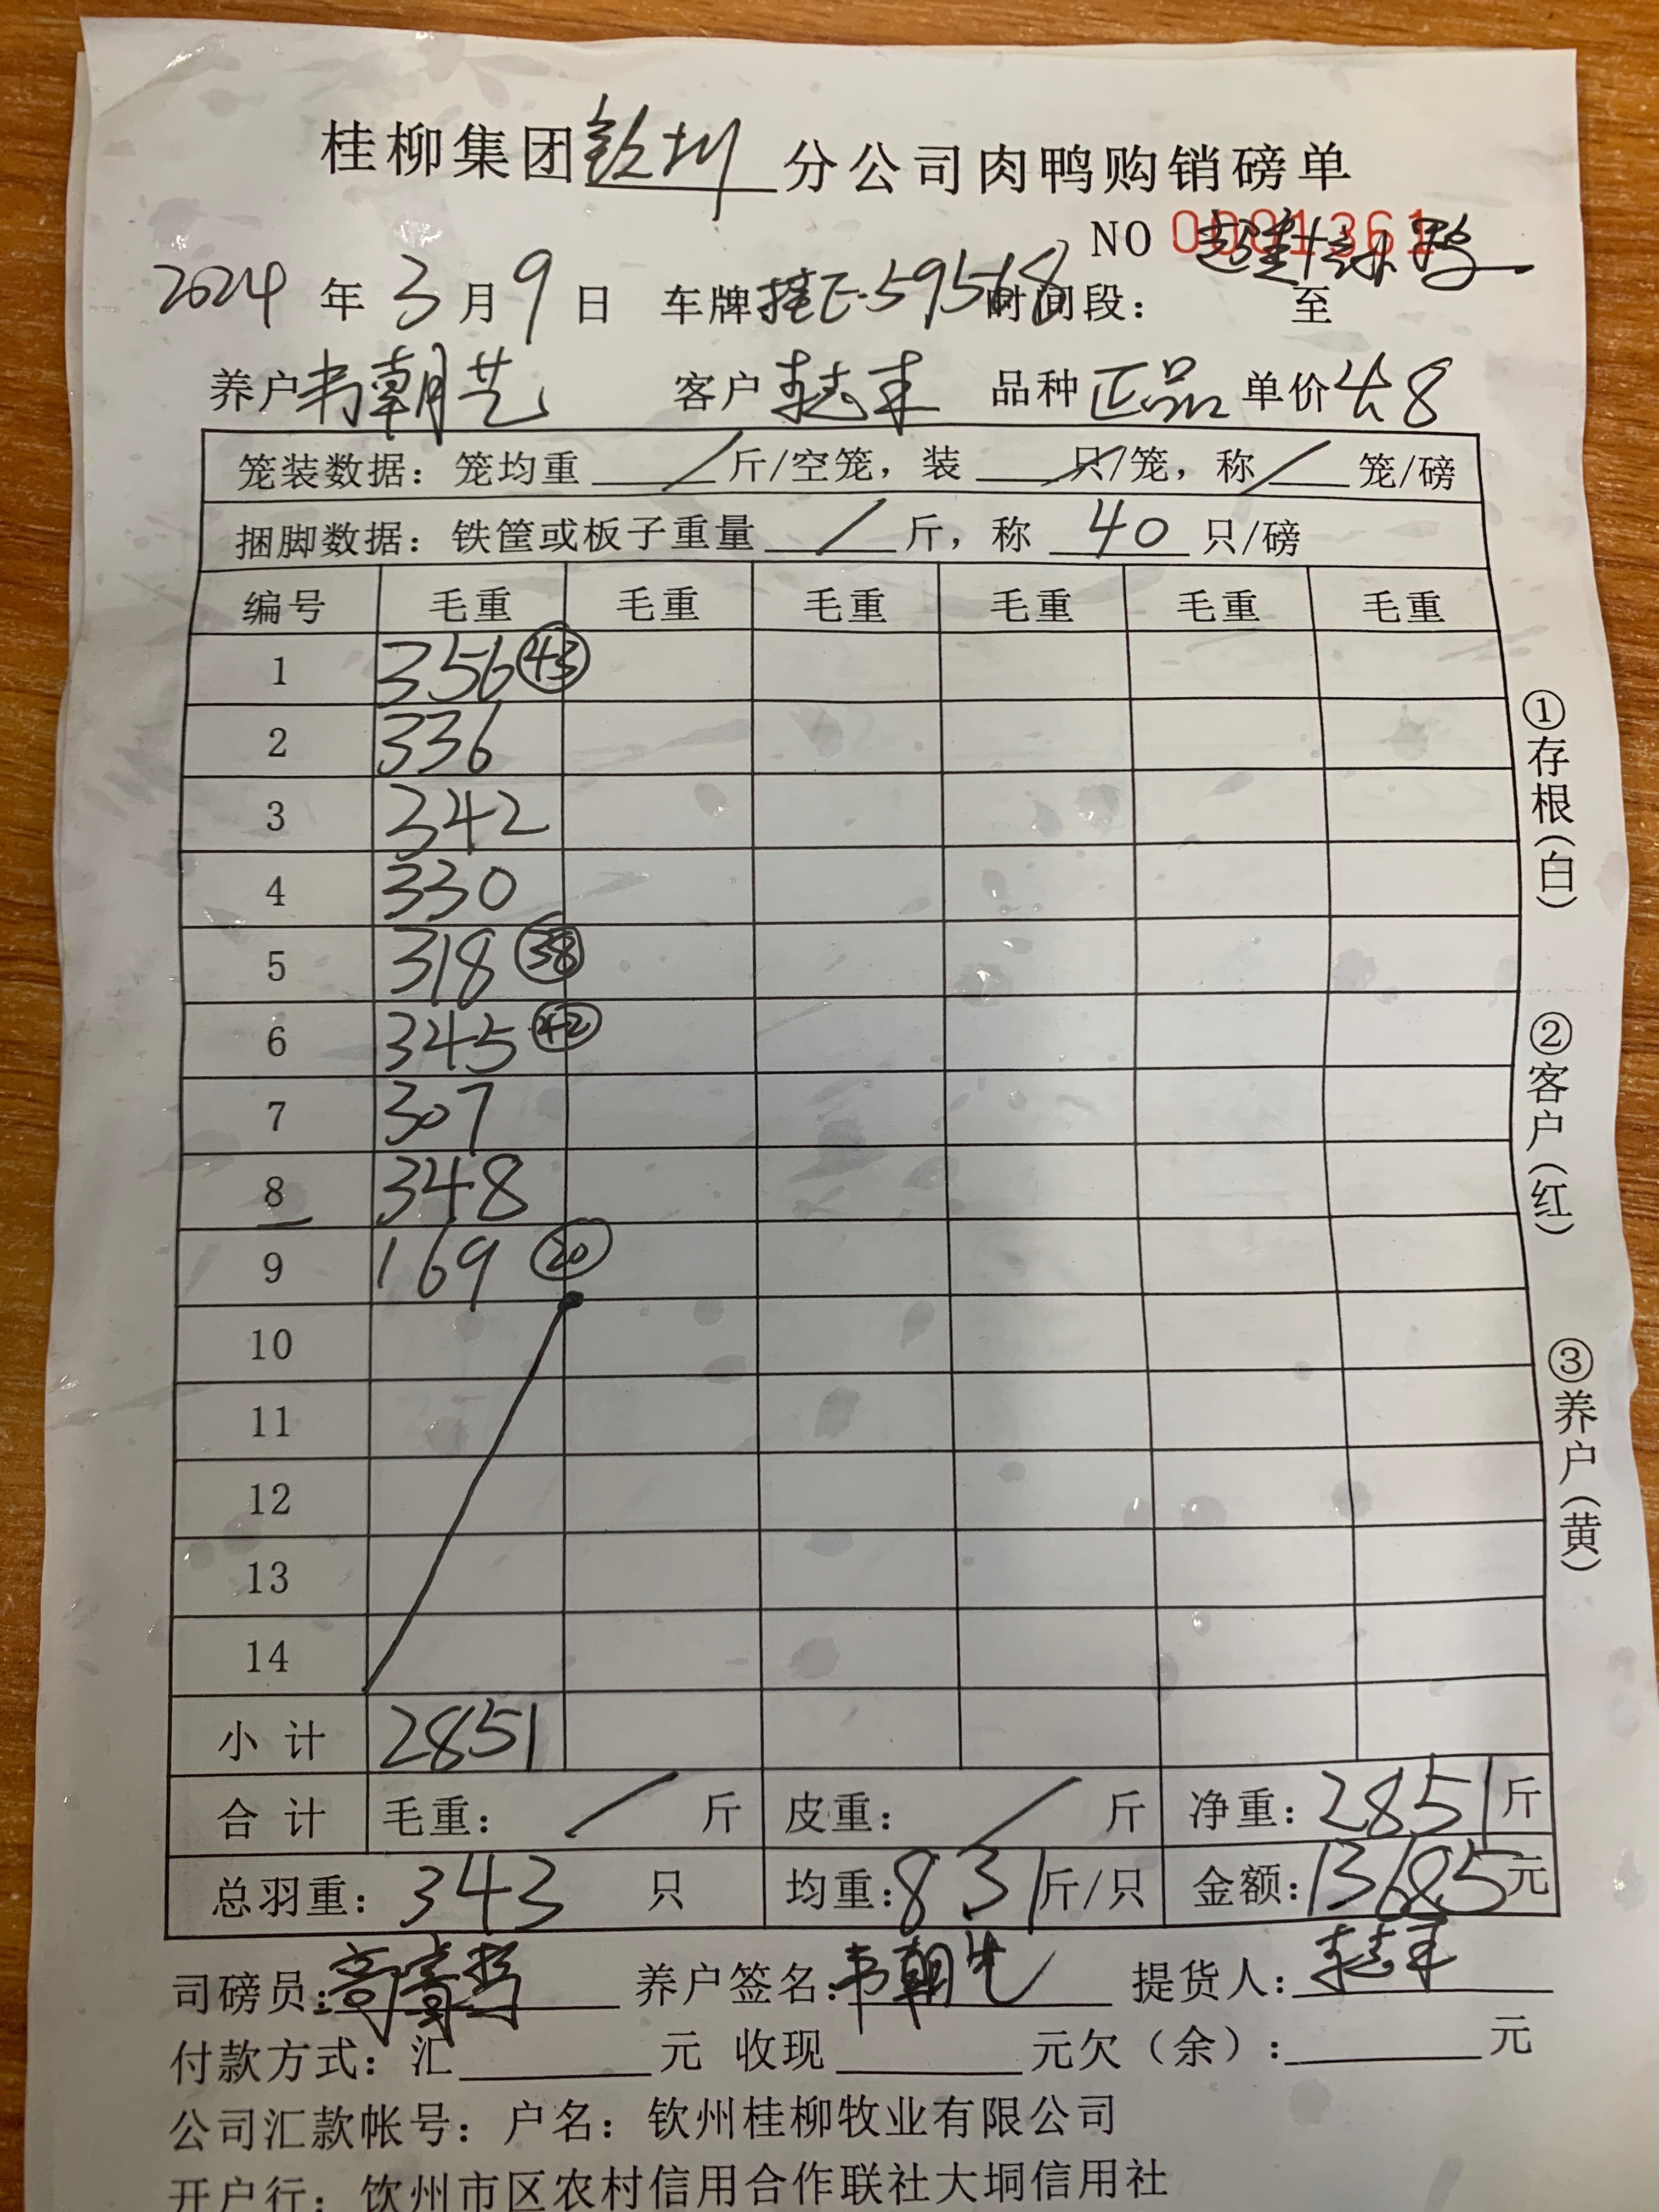 桂柳集团钦州分公司肉鸭购销磅单
NO 0001361
2024年3月9日 车牌 59518 时间段： 至
养户韦朝艺 客户李志丰 品种正品 单价4.8
笼装数据：笼均重 / 斤/空笼，装 / 只/笼，称 / 笼/磅
捆脚数据：铁筐或板子重量 / 斤，称 40 只/磅
编号 毛重 毛重 毛重 毛重 毛重 毛重
1 356 43
2 336
3 342
4 330
5 318 38
6 345 42
7 307
8 348
9 169 20
10
11
12
13
14
小计 2851
合计 毛重： / 斤 皮重： / 斤 净重：2851斤
总羽重：343 只 均重：8.31斤/只 金额：13685元
司磅员： 养户签名：韦朝艺 提货人：李志丰
付款方式：汇 元 收现 元欠（余）： 元
公司汇款帐号：户名：钦州桂柳牧业有限公司
开户行：钦州市区农村信用合作联社大垌信用社
①存根（白）
②客户（红）
③养户（黄）